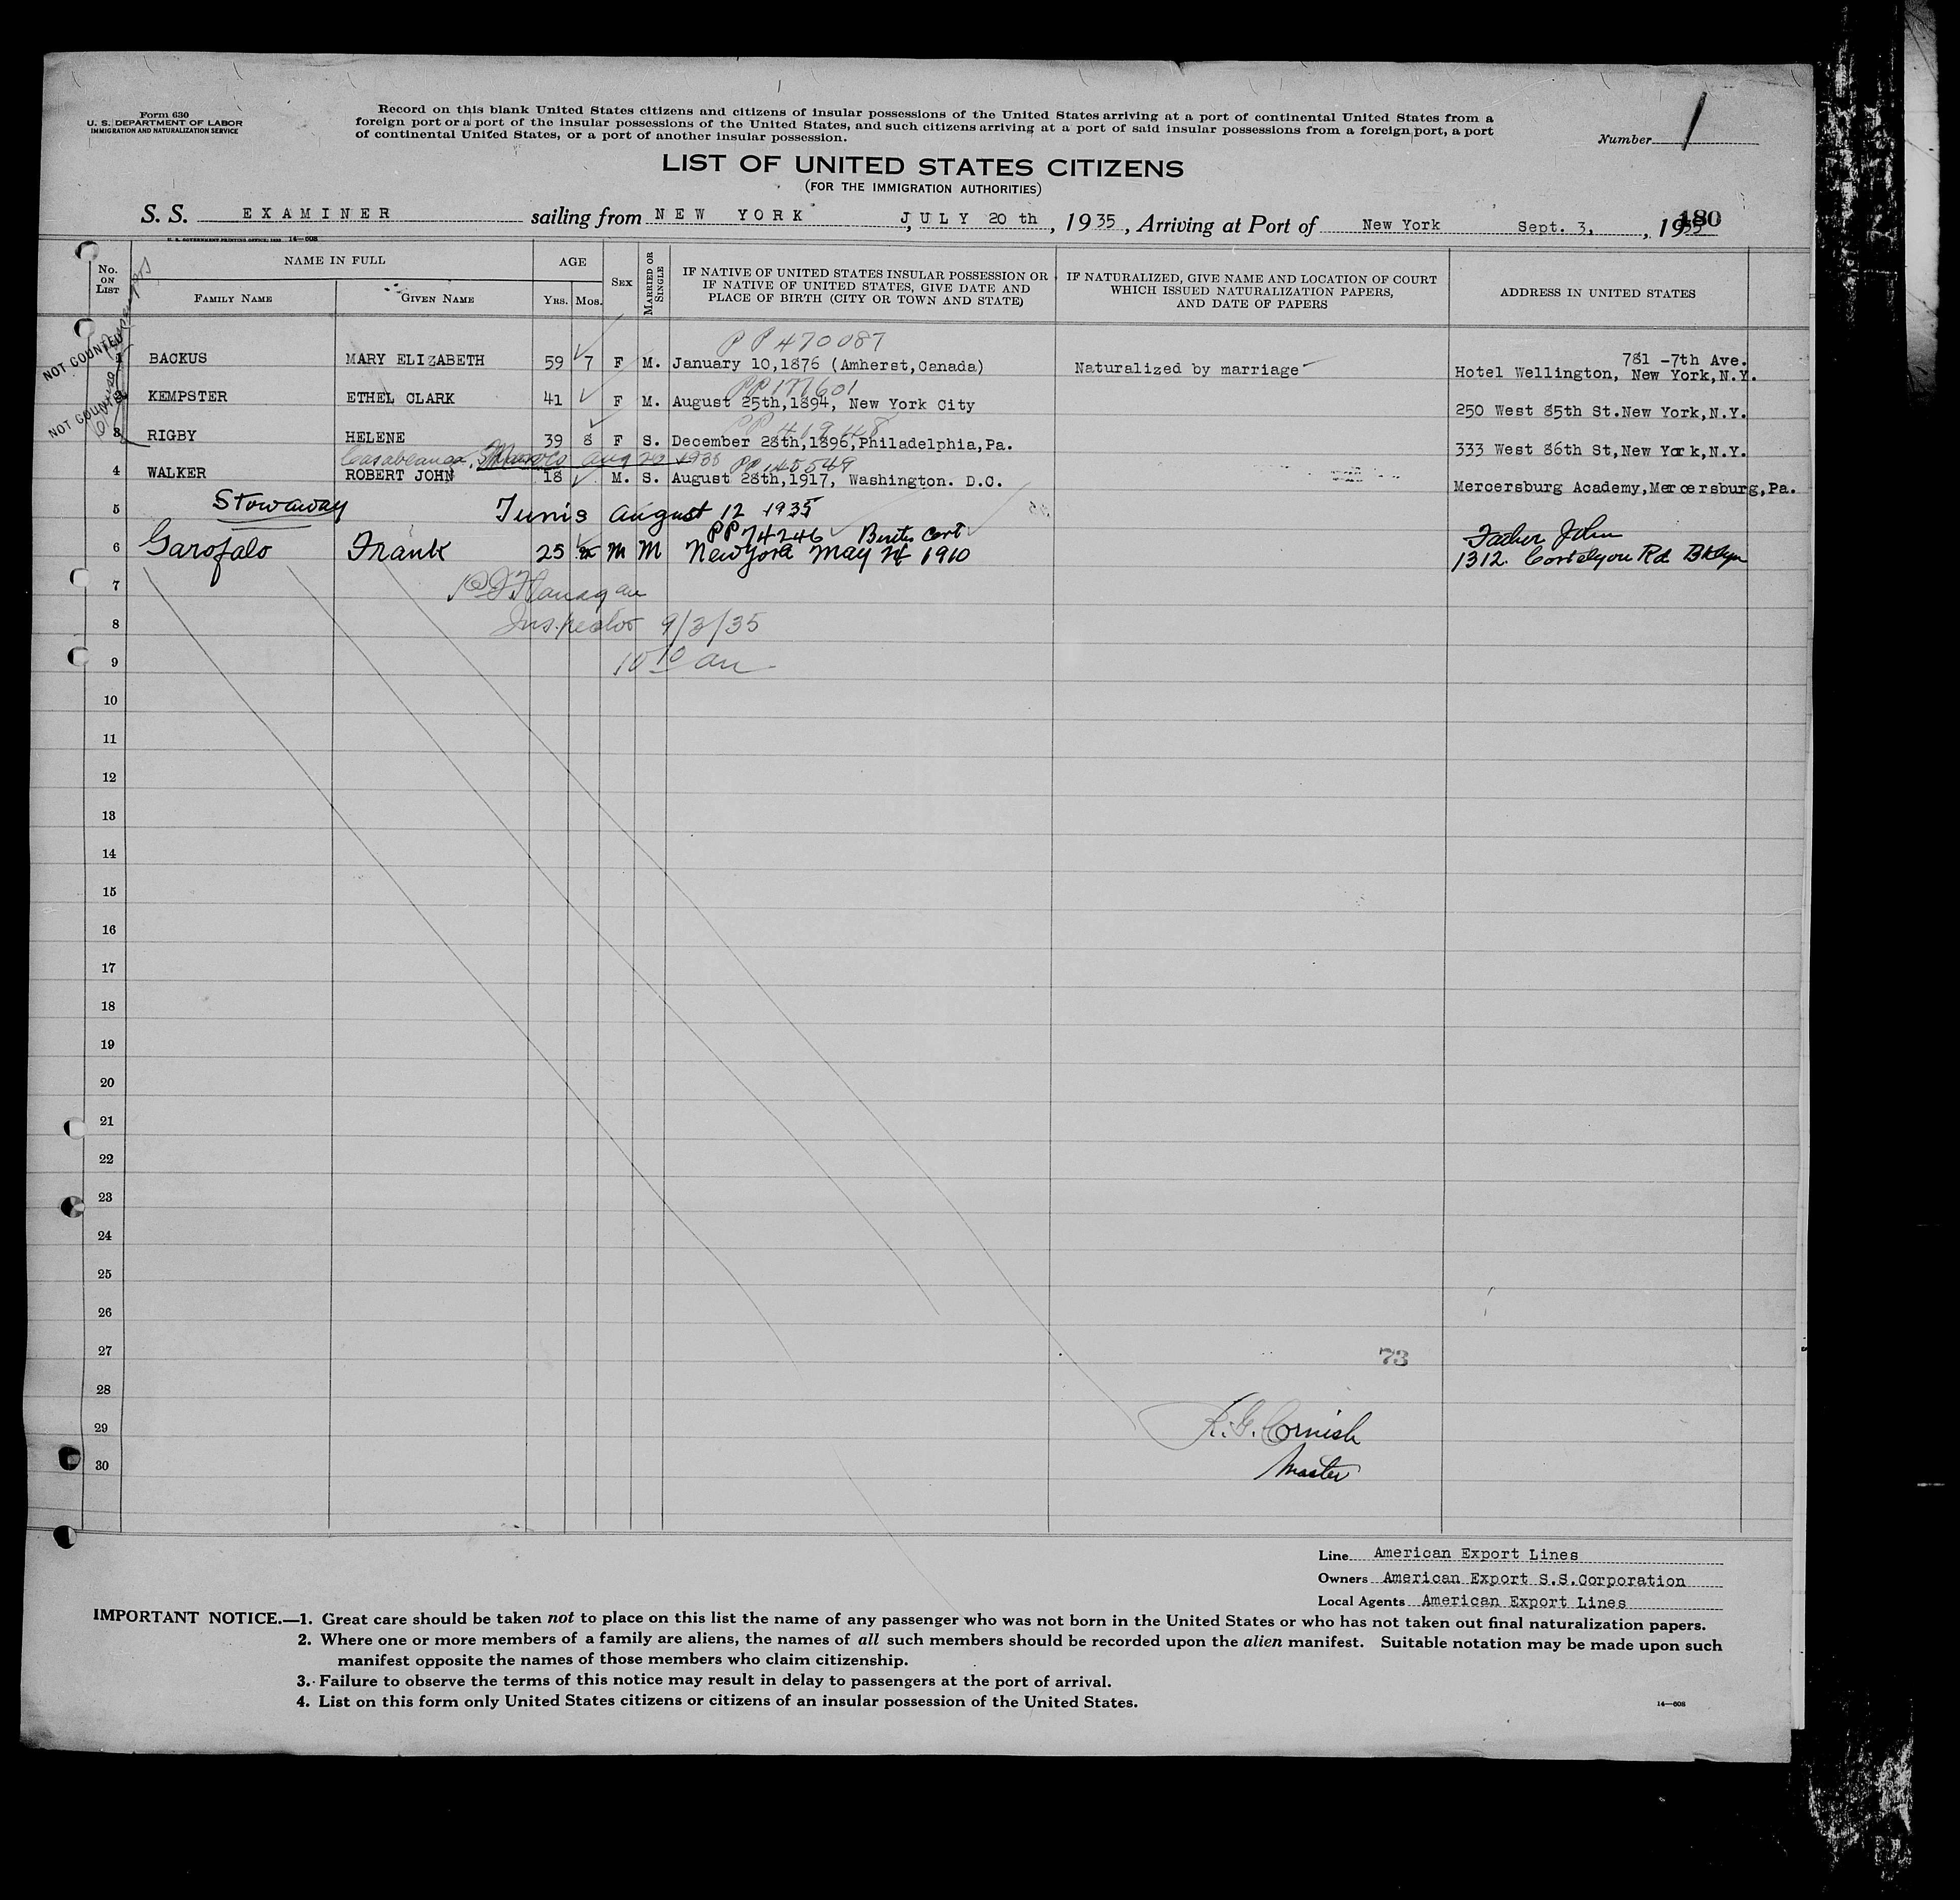 Form 630
U. S. DEPARTMENT OF LABOR
IMMIGRATION AND NATURALIZATION SERVICE
Record on this blank United States citizens and citizens of insular possessions of the United States arriving at a port of continental United States from a
foreign port or a port of the insular possessions of the United States, and such citizens arriving at a port of said insular possessions from a foreign port, a port
of continental United States, or a port of another insular possession.
Number 1
LIST OF UNITED STATES CITIZENS
(FOR THE IMMIGRATION AUTHORITIES)
S. S. EXAMINER sailing from NEW YORK, JULY 20 th, 1935, Arriving at Port of New York Sept. 3, 1935
180
U. S. GOVERNMENT PRINTING OFFICE: 14—608
No. ON LIST
NAME IN FULL
FAMILY NAME
GIVEN NAME
AGE
YRS. MOS.
SEX
MARRIED OR SINGLE
IF NATIVE OF UNITED STATES INSULAR POSSESSION OR
IF NATIVE OF UNITED STATES, GIVE DATE AND
PLACE OF BIRTH (CITY OR TOWN AND STATE)
IF NATURALIZED, GIVE NAME AND LOCATION OF COURT
WHICH ISSUED NATURALIZATION PAPERS,
AND DATE OF PAPERS
ADDRESS IN UNITED STATES
NOT COUNTED
NOT COUNTED
PP 470087
1 BACKUS MARY ELIZABETH 59 7 F M. January 10,1876 (Amherst,Canada) Naturalized by marriage 781 -7th Ave.
Hotel Wellington, New York,N.Y.
PP 177601
2 KEMPSTER ETHEL CLARK 41 F M. August 25th,1894, New York City 250 West 85th St.New York,N.Y.
PP 419448
3 RIGBY HELENE 39 8 F S. December 28th,1896,Philadelphia,Pa. 333 West 86th St,New York,N.Y.
Casablanca, Morocco Aug 20 1935 PP 145549
4 WALKER ROBERT JOHN 18 M. S. August 28th,1917, Washington. D.C. Mercersburg Academy,Mercersburg,Pa.
5 Stowaway Tunis August 12 1935
PP 74246 Birth Cert Father John
6 Garofalo Frank 25 M M New York May 1910 1312 Cortelyou Rd Bklyn
7 Flanagan
8 Inspector 9/3/35
9 10 10 am
10
11
12
13
14
15
16
17
18
19
20
21
22
23
24
25
26
27
73
28
29 R. G. Cornish
30 Master
Line American Export Lines
Owners American Export S.S.Corporation
Local Agents American Export Lines
IMPORTANT NOTICE.—1. Great care should be taken not to place on this list the name of any passenger who was not born in the United States or who has not taken out final naturalization papers.
2. Where one or more members of a family are aliens, the names of all such members should be recorded upon the alien manifest. Suitable notation may be made upon such
manifest opposite the names of those members who claim citizenship.
3. Failure to observe the terms of this notice may result in delay to passengers at the port of arrival.
4. List on this form only United States citizens or citizens of an insular possession of the United States.
14—608